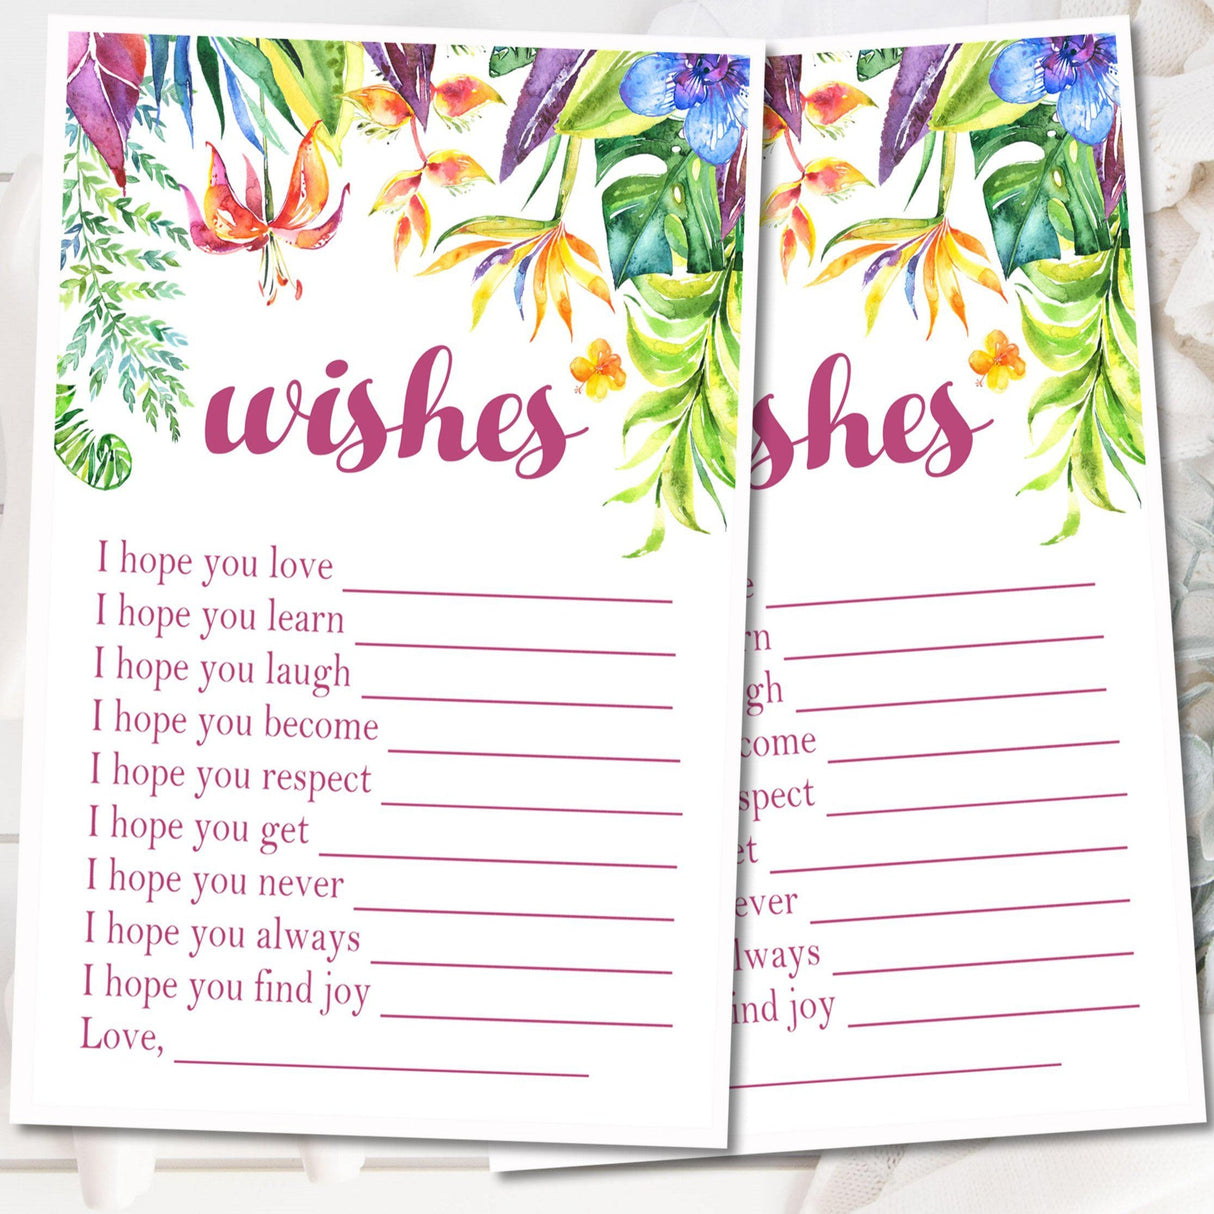 wishes
I hope you love
I hope you learn
I hope you laugh
I hope you become
I hope you respect
I hope you get
I hope you never
I hope you always
I hope you find joy
Love,
shes
e
rn
gh
come
spect
et
ever
lways
ind joy